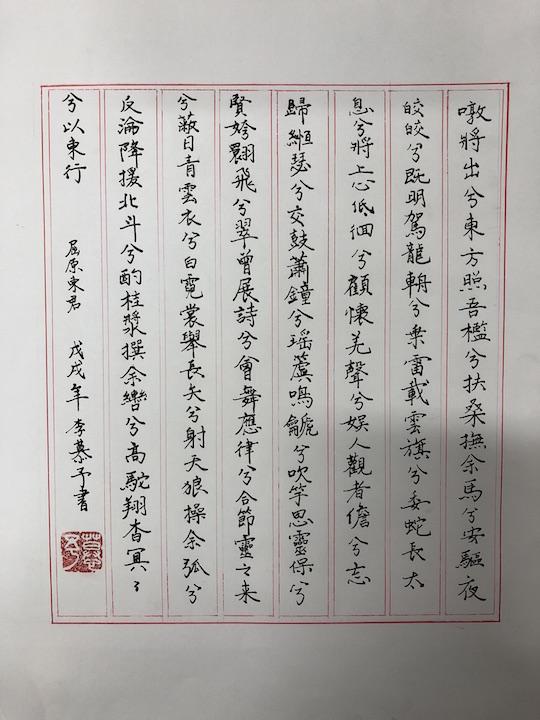 暾將出兮東方照吾檻兮扶桑撫余馬兮安驅夜
皎皎兮既明駕龍輈兮乘雷載雲旗兮委蛇長太
息兮將上心低佪兮顧懷羌聲兮娛人觀者儋兮忘
歸緪瑟兮交鼓蕭鐘兮瑤簴鳴䶵兮吹竽思靈保兮
賢姱翾飛兮翠曾展詩兮會舞應律兮合節靈之来
兮蔽日青雲衣兮白霓裳舉長矢兮射天狼操余弧兮
反淪降援北斗兮酌桂漿撰余轡兮高駝翔杳冥々
兮以東行 屈原東君 戊戌年李慕予書